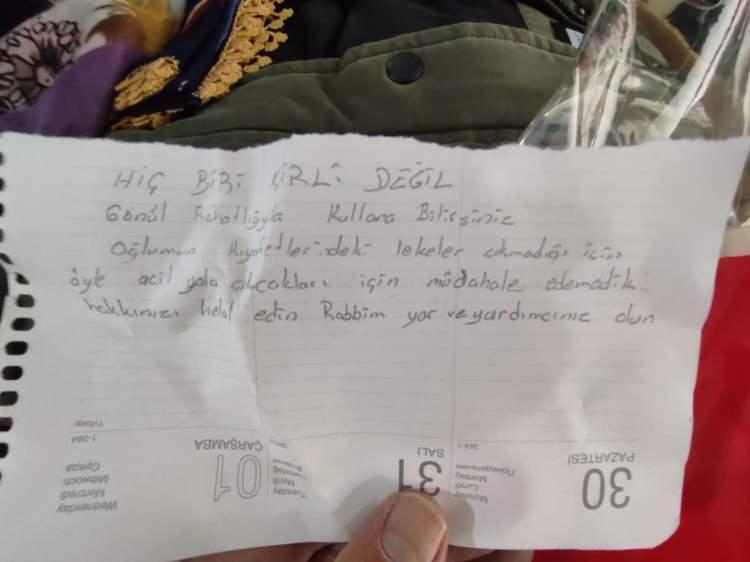 HİÇ BİRİ KİRLİ DEĞİL
Gönül Rahatlığıyla Kullana Bilirsiniz
Oğlumun Kıyafetlerindeki lekeler çıkmadığı için
öyle acil yola çıkcakları için müdahale edemedik
hakkınızı helal edin Rabbim yar ve yardımcınız olun
30
PAZARTESİ
Monday
Lundi
Montag
Понедельник
364-1
31
SALI
Tuesday
Mardi
Dienstag
Вторник
01
ÇARŞAMBA
Wednesday
Mercredi
Mittwoch
Среда
1-364